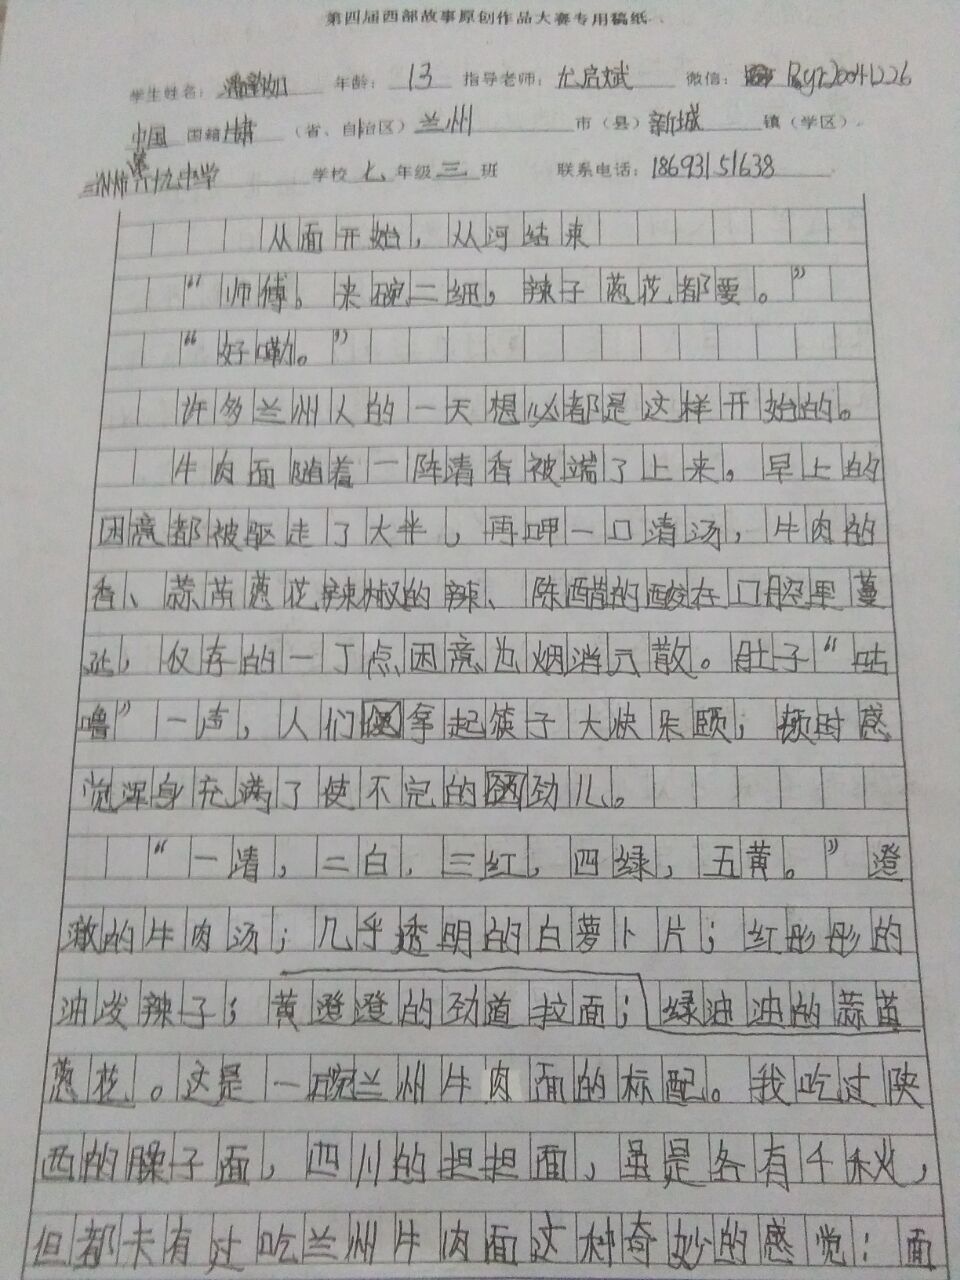 第四届西部故事原创作品大赛专用稿纸
学生姓名：潘 如 年龄：13 指导老师：尤启斌 微信：
中国 国籍 甘肃 （省、自治区）兰州 市（县）新城 镇（学区）
兰州市第六十九中学 学校 七 年级 三 班 联系电话：18693151638
从面开始，从河结束
“师傅。来碗二细，辣子葱花都要。”
“好嘞。”
许多兰州人的一天想必都是这样开始的。
牛肉面随着一阵清香被端了上来。早上的
困意都被驱走了大半，再呷一口清汤，牛肉的
香、蒜苗葱花辣椒的辣、陈醋的酸在口腔里蔓
延，仅存的一丁点困意也烟消云散。肚子“咕
噜”一声，人们拿起筷子大快朵颐；顿时感
觉浑身充满了使不完的劲儿。
“一清，二白，三红，四绿，五黄。”澄
澈的牛肉汤；几乎透明的白萝卜片；红彤彤的
油泼辣子；黄澄澄的劲道拉面；绿油油的蒜苗
葱花。这是一碗兰州牛肉面的标配。我吃过陕
西的臊子面，四川的担担面，虽是各有千秋，
但都未有过吃兰州牛肉面这种奇妙的感觉：面